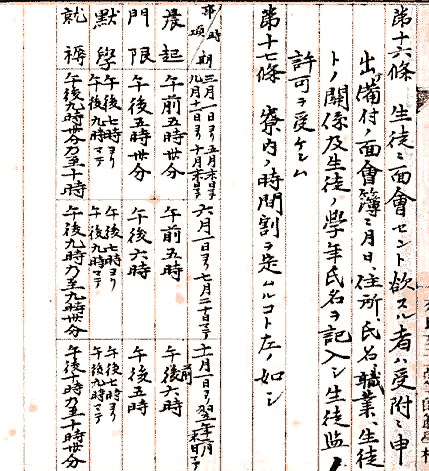 第十六條 生徒ニ面會セント欲スル者ハ受附ニ申
出、備付ノ面會簿ニ月日、住所、氏名、職業、生徒
トノ關係及生徒ノ學年氏名ヲ記入シ生徒監ノ
許可ヲ受ケシム
第十七條 寮内ノ時間割ヲ定ムルコト左ノ如シ
事項 時期
三月一日ヨリ五月末日マデ
九月十一日ヨリ十月末日マデ
六月一日ヨリ七月二十日マデ
十一月一日ヨリ翌年二月末日マデ
晨起 午前五時卅分 午前五時 午前六時
門限 午後五時卅分 午後六時 午後五時
默學 午後七時ヨリ午後九時マテ 午後七時ヨリ午後九時マテ 午後七時ヨリ午後九時マテ
就褥 午後九時卅分乃至十時 午後九時乃至九時卅分 午後十時乃至十時卅分